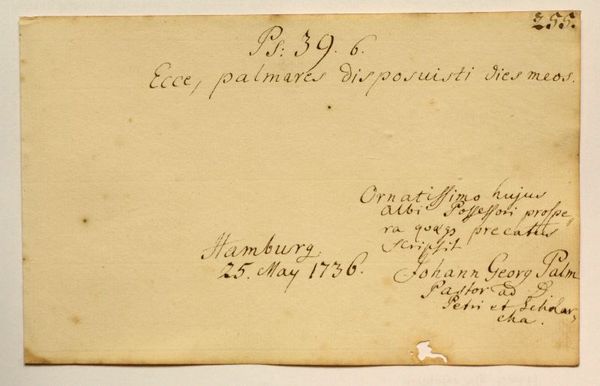 255.
Ps: 39. 6.
Ecce, palmares disposuisti dies meos.
Ornatissimo hujus
Albi Possessori prospe-
ra quæqo precatus
scripsit
Hamburg.
25. May 1736.
Johann Georg Palm
Pastor ad D.
Petri et Scholar-
cha.